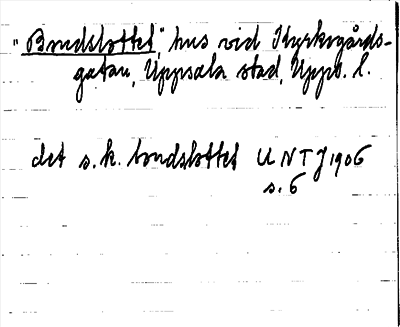 "Bondslottet", hus vid Kyrkogårds-
gatan, Uppsala stad, Uppl. l.
det s.k. bondslottet UNTJ 1906
s. 6